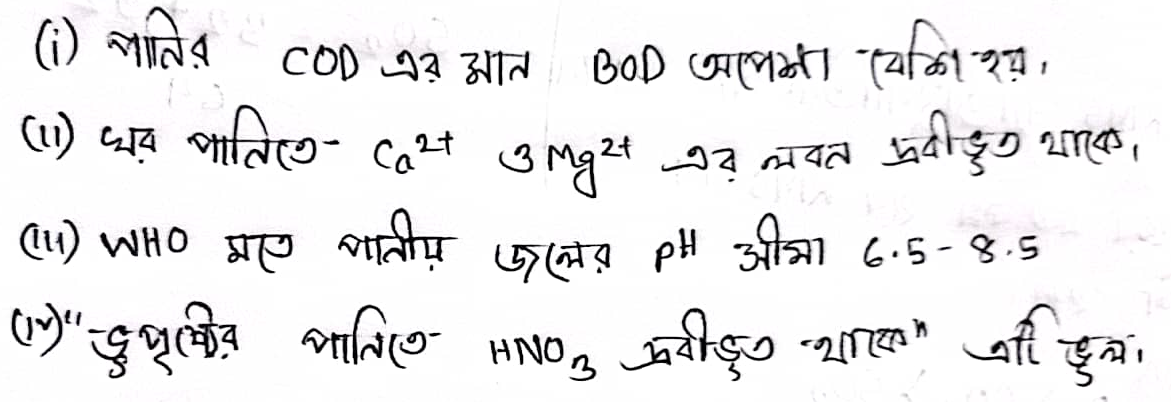 (i) পানির COD এর মান BOD অপেক্ষা বেশি হয়।
(ii) খর পানিতে Ca²⁺ ও Mg²⁺ এর লবন দ্রবীভূত থাকে।
(iii) WHO মতে পানীয় জলের pH সীমা 6.5-8.5
(iv) "ভূপৃষ্ঠের পানিতে HNO₃ দ্রবীভূত থাকে" এটি ভুল।